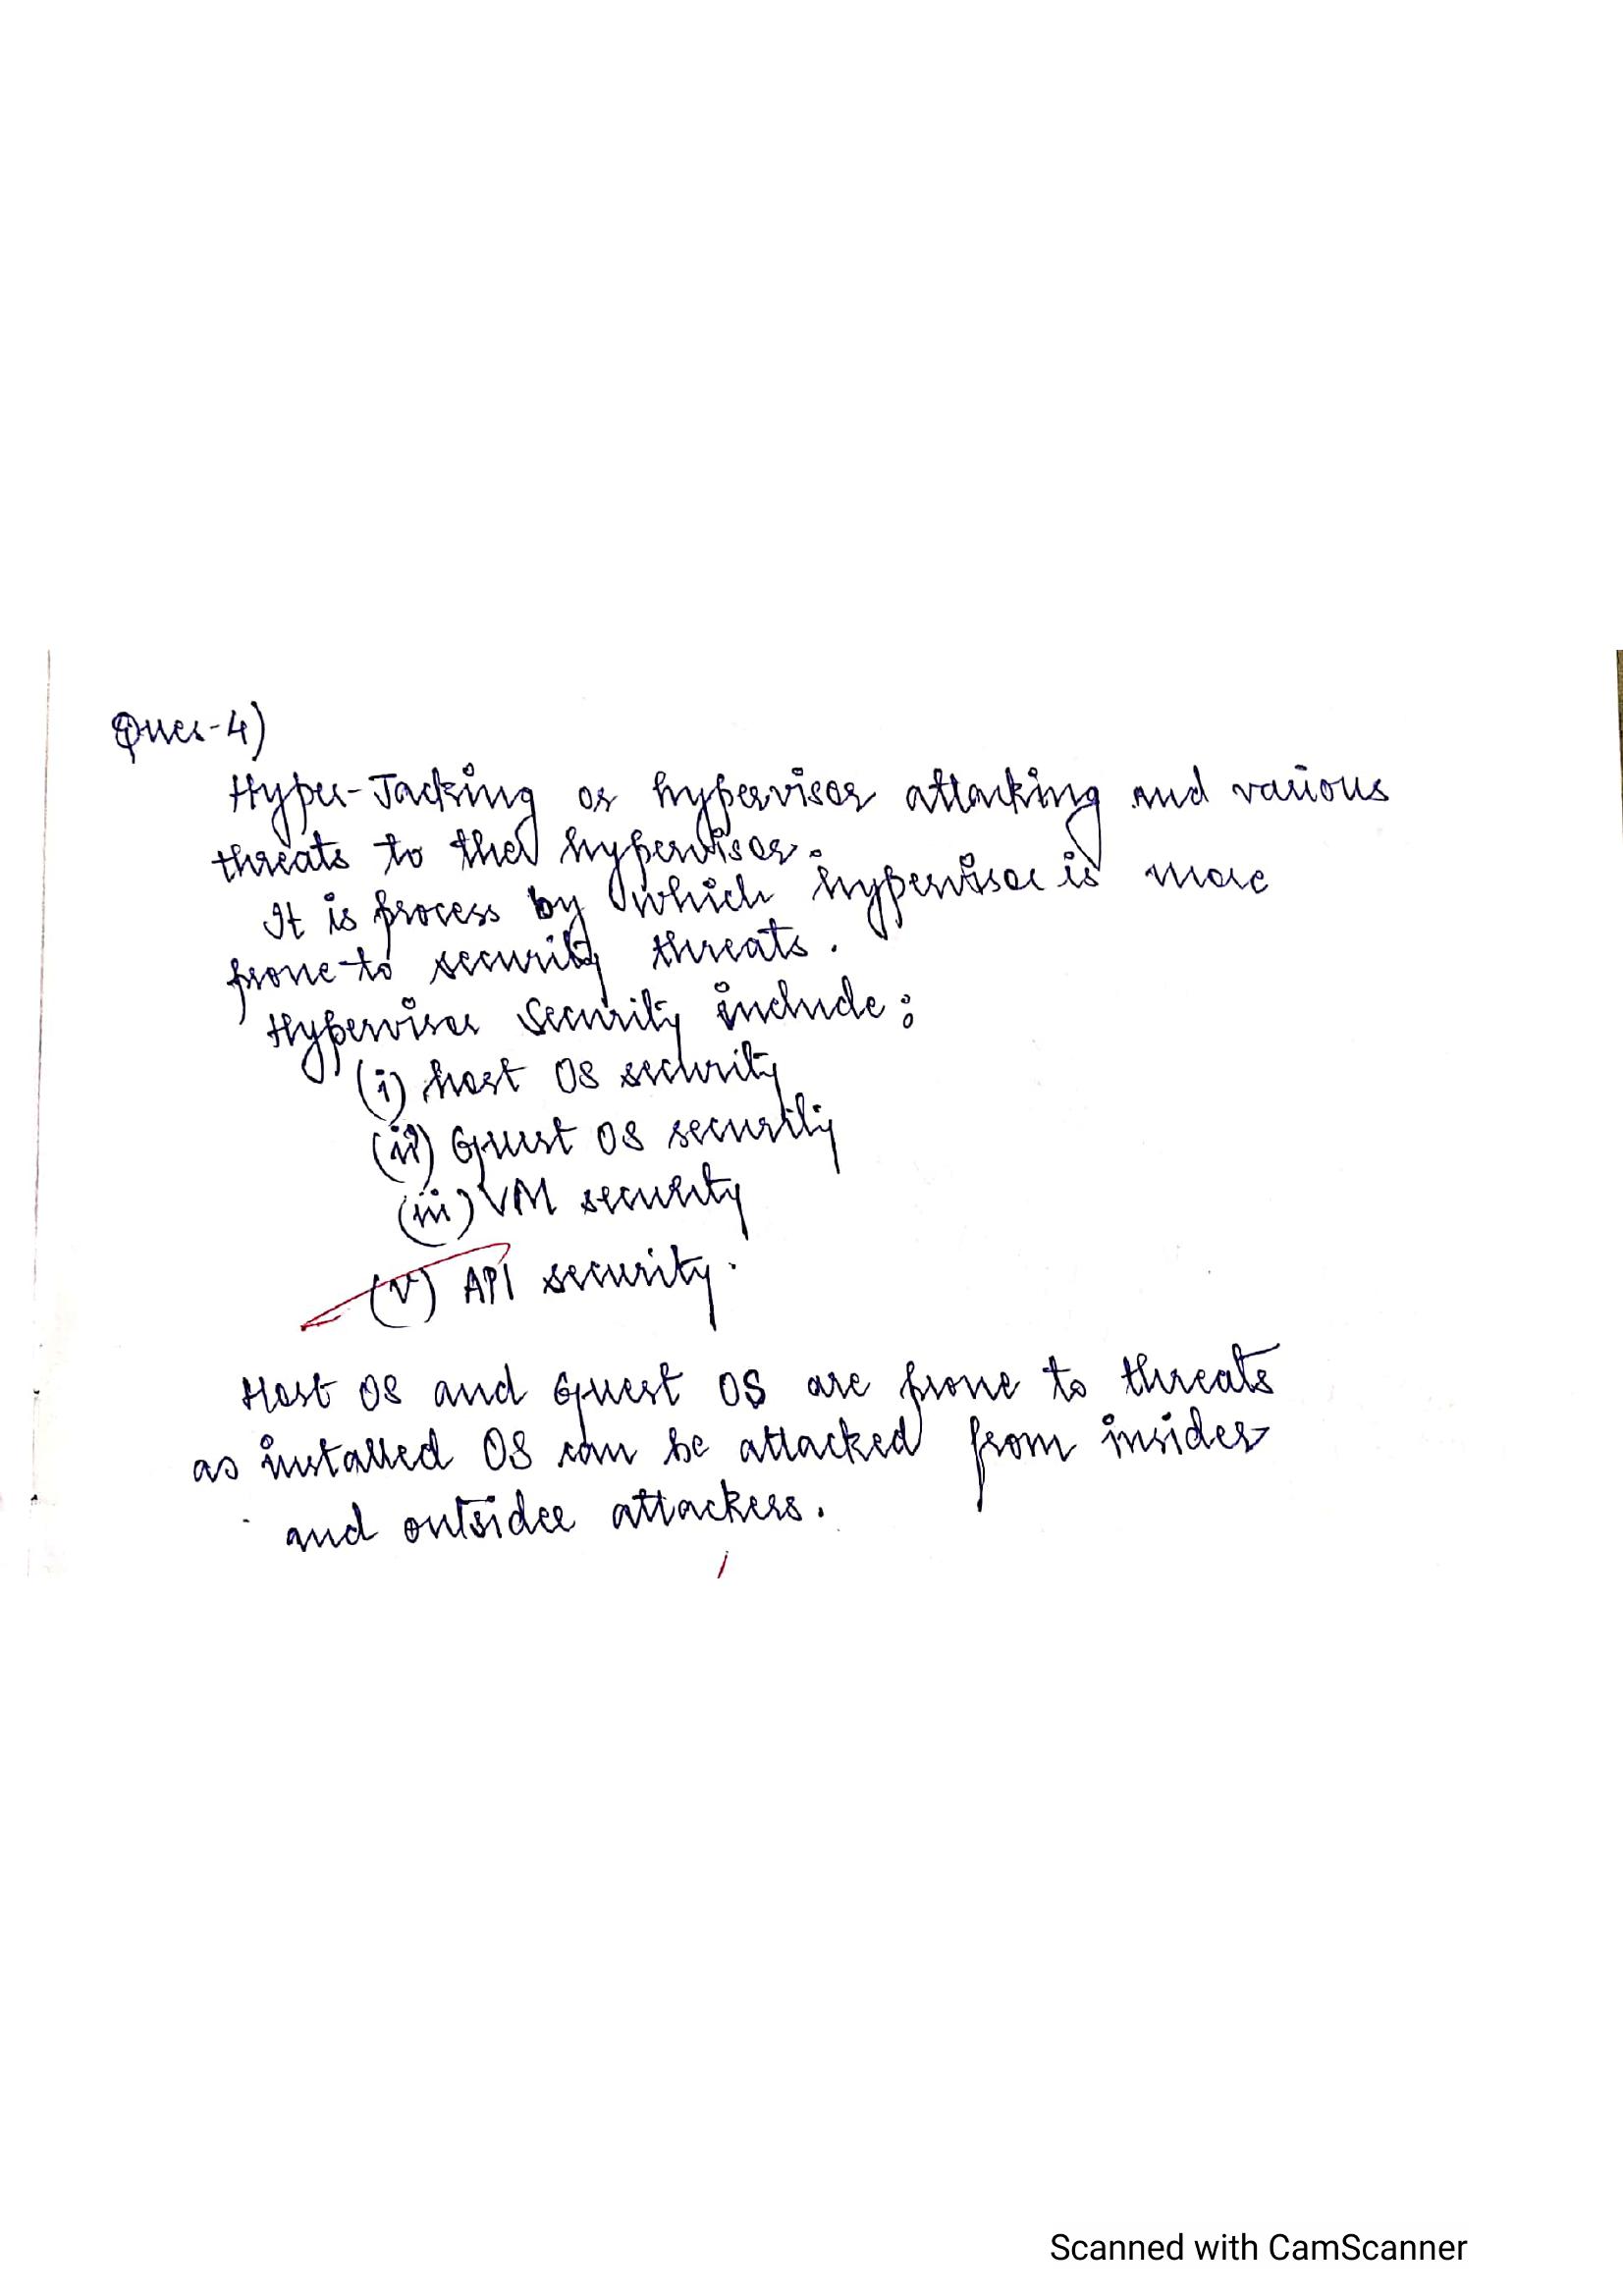 Ques-4)
Hyper-Jacking or hypervisor attacking and various
threats to the hypervisor.
It is process by which hypervisor is more
prone to security threats.
Hypervisor Security include:
(i) host OS security
(ii) Guest OS security
(iii) VM security
(v) API security.
Host OS and Guest OS are prone to threats
as installed OS can be attacked from insider
and outsidee attackers.
Scanned with CamScanner